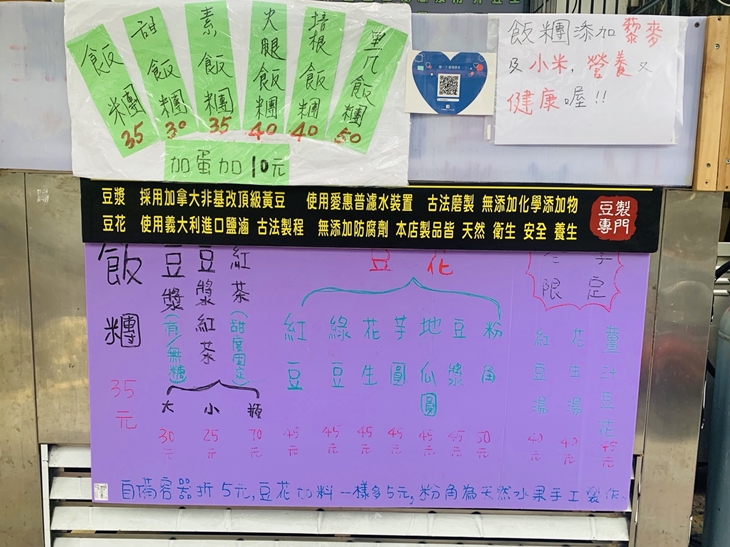 飯糰 35
甜飯糰 30
素飯糰 35
火腿飯糰 40
培根飯糰 40
單爪飯糰 50
加蛋加10元
飯糰添加藜麥
及小米,營養又
健康喔!!
豆漿 採用加拿大非基改頂級黃豆 使用愛惠普濾水裝置 古法磨製 無添加化學添加物
豆花 使用義大利進口鹽滷 古法製程 無添加防腐劑 本店製品皆 天然 衛生 安全 養生
豆製
專門
飯糰 35元
豆漿(有/無糖)
豆漿紅茶
紅茶(甜度固定)
大 30元
小 25元
瓶 70元
豆花
紅豆 45元
綠豆 45元
花生 45元
芋圓 45元
地瓜圓 45元
豆漿 45元
粉角 50元
限定
紅豆湯 40元
花生湯 40元
45元
自備容器折5元,豆花加料一樣多5元,粉角為天然水果手工製作